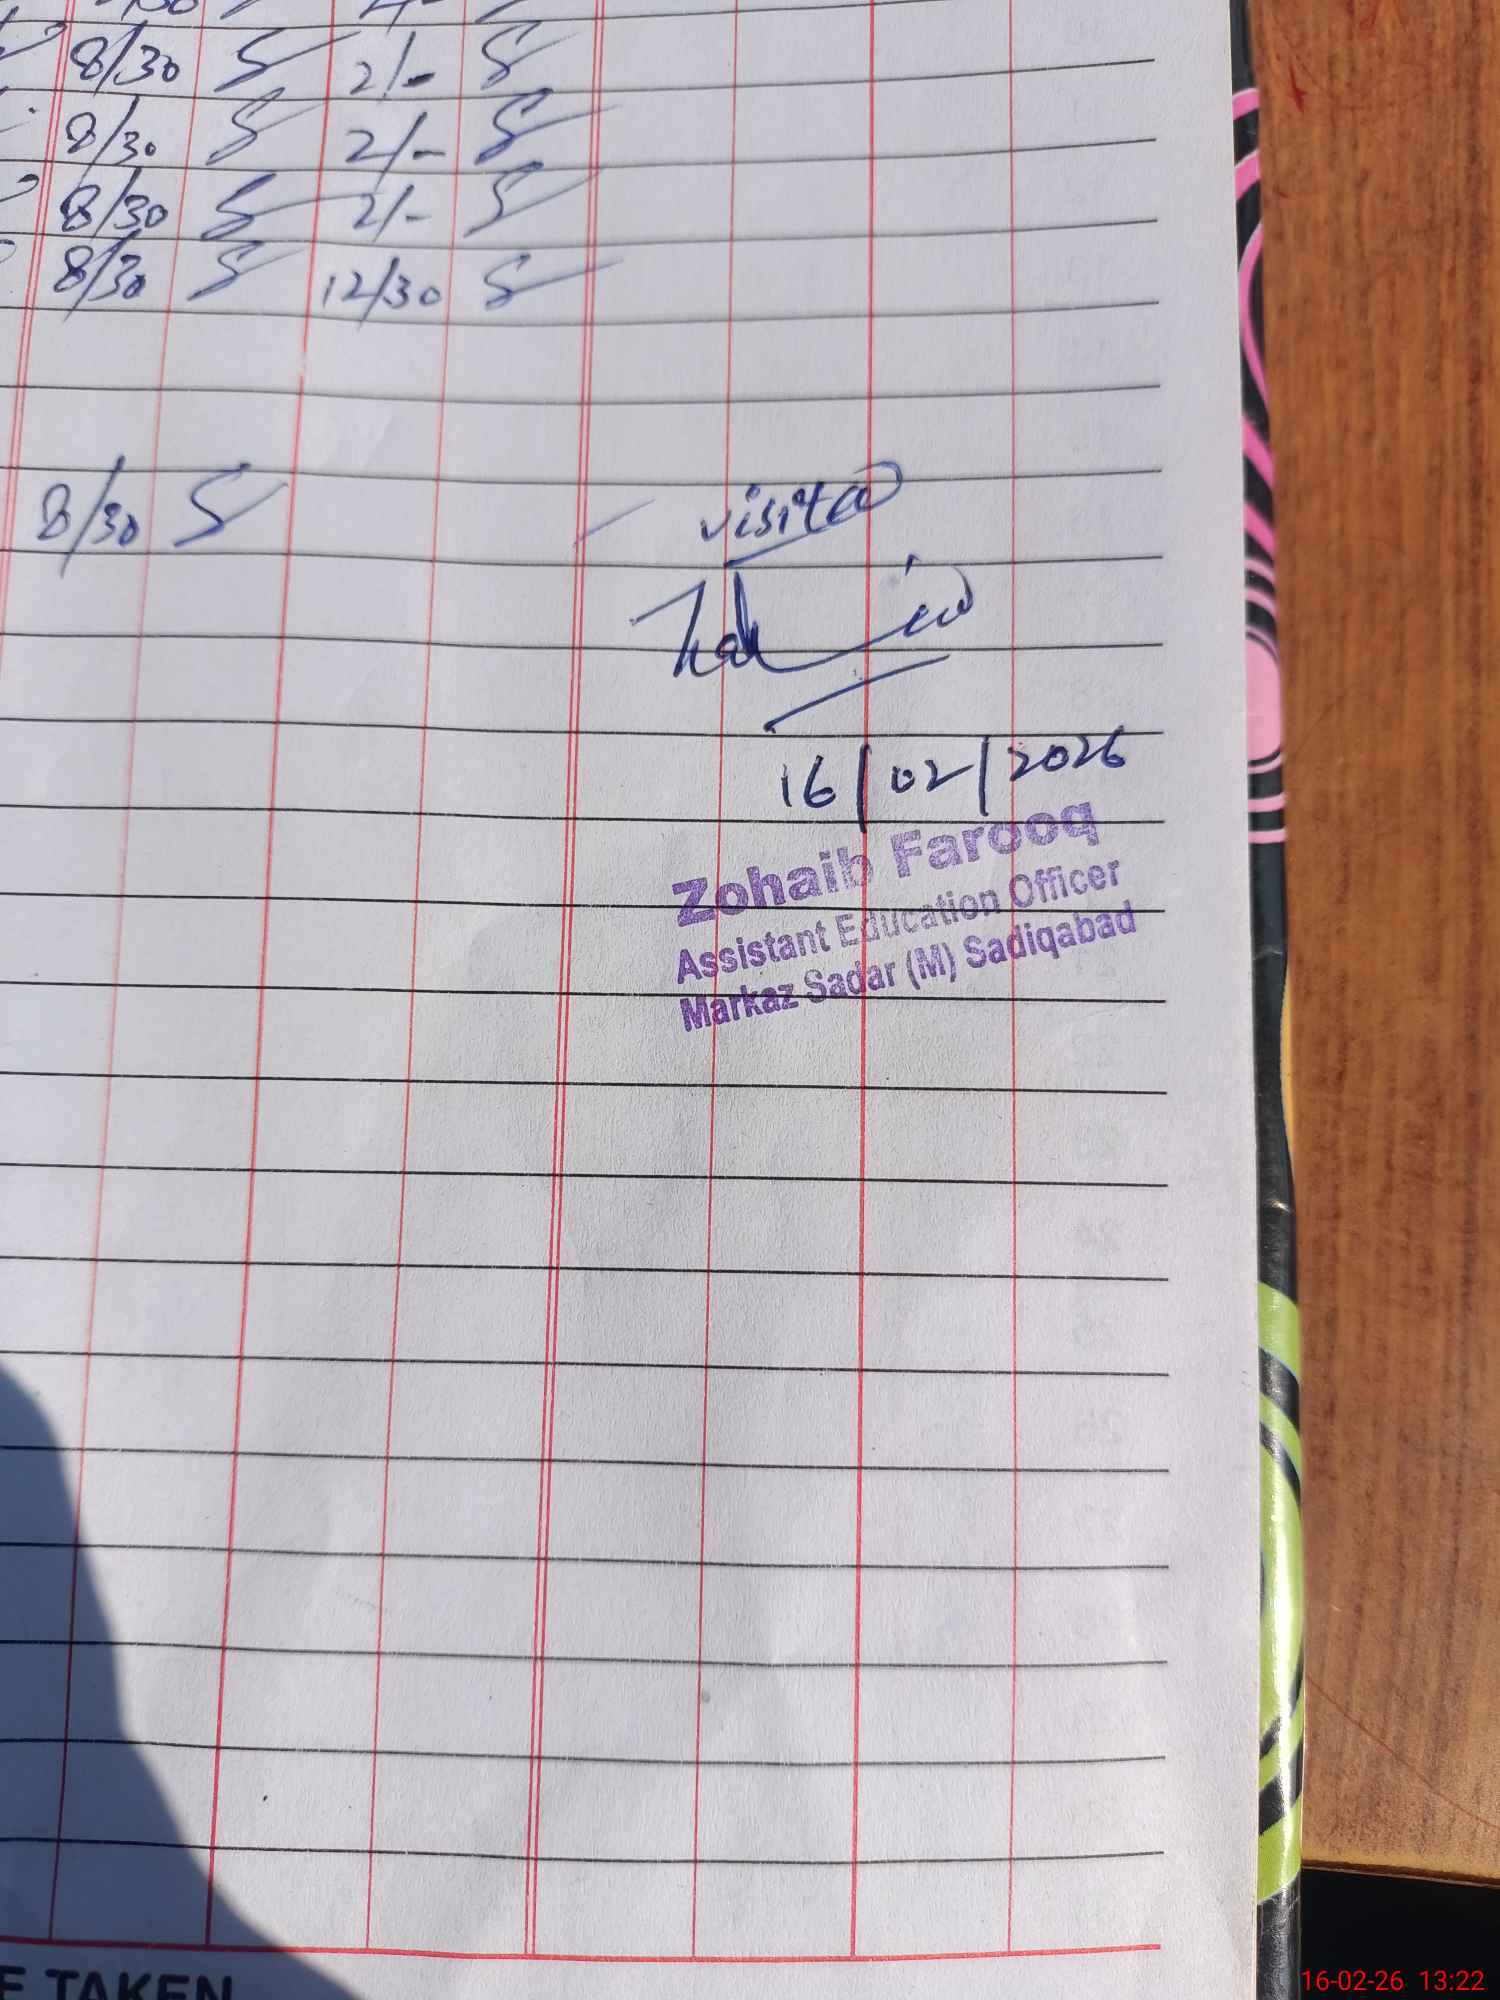 8/30 2/-
8/30 2/-
8/30 2/-
8/30 12/30
8/30
visited
16/02/2026
Zohaib Farooq
Assistant Education Officer
Markaz Sadar (M) Sadiqabad
E TAKEN
16-02-26 13:22